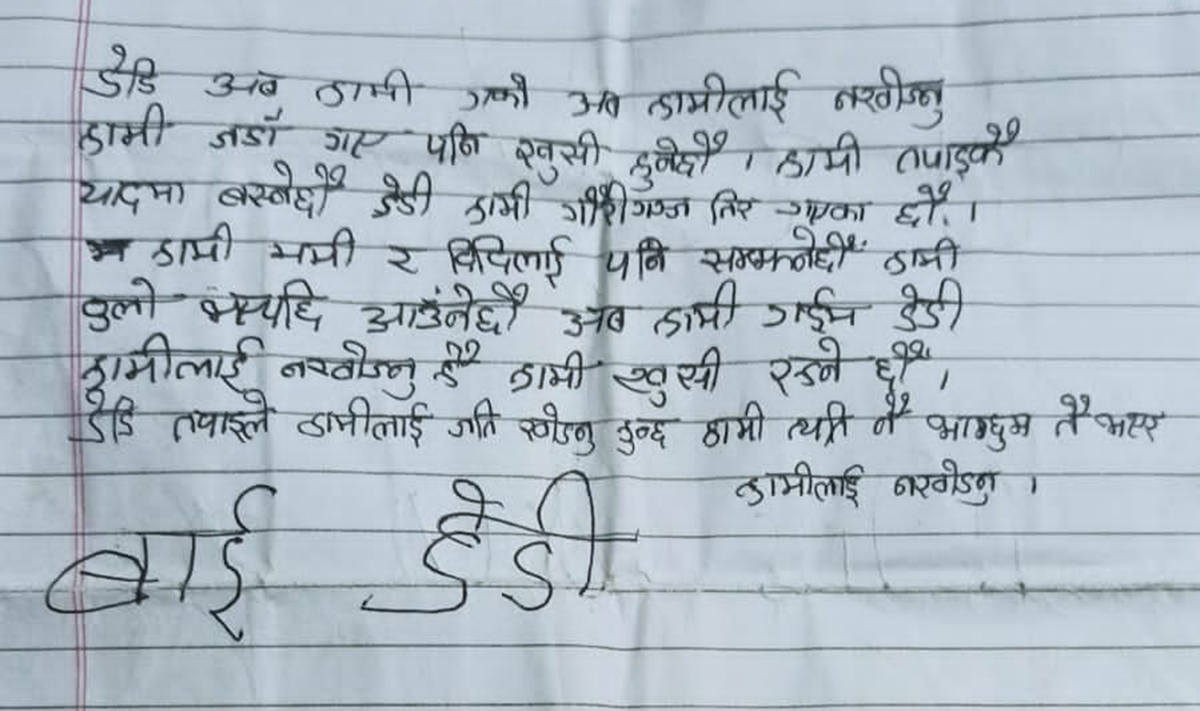 डेडि अब हामी गको अब हामीलाई नखोज्नु
हामी जहाँ गए पनि खुसी हुनेछौँ । हामी तपाइकै
यादमा बस्नेछौँ डेडी हामी गौरीगञ्ज तिर गएका छौँ ।
हामी ममी र दिदिलाई पनि सम्झनेछौँ हामी
ठुलो भएपछि आउँनेछौँ अब हामी गईम डेडी
हामीलाई नखोज्नु है हामी खुसी रहने छौँ ।
डेडि तपाइले हामीलाई जति खोज्नु हुन्छ हामी त्यति नै भाग्छुम तै भएर
हामीलाई नखोज्नु ।
बाई डेडी